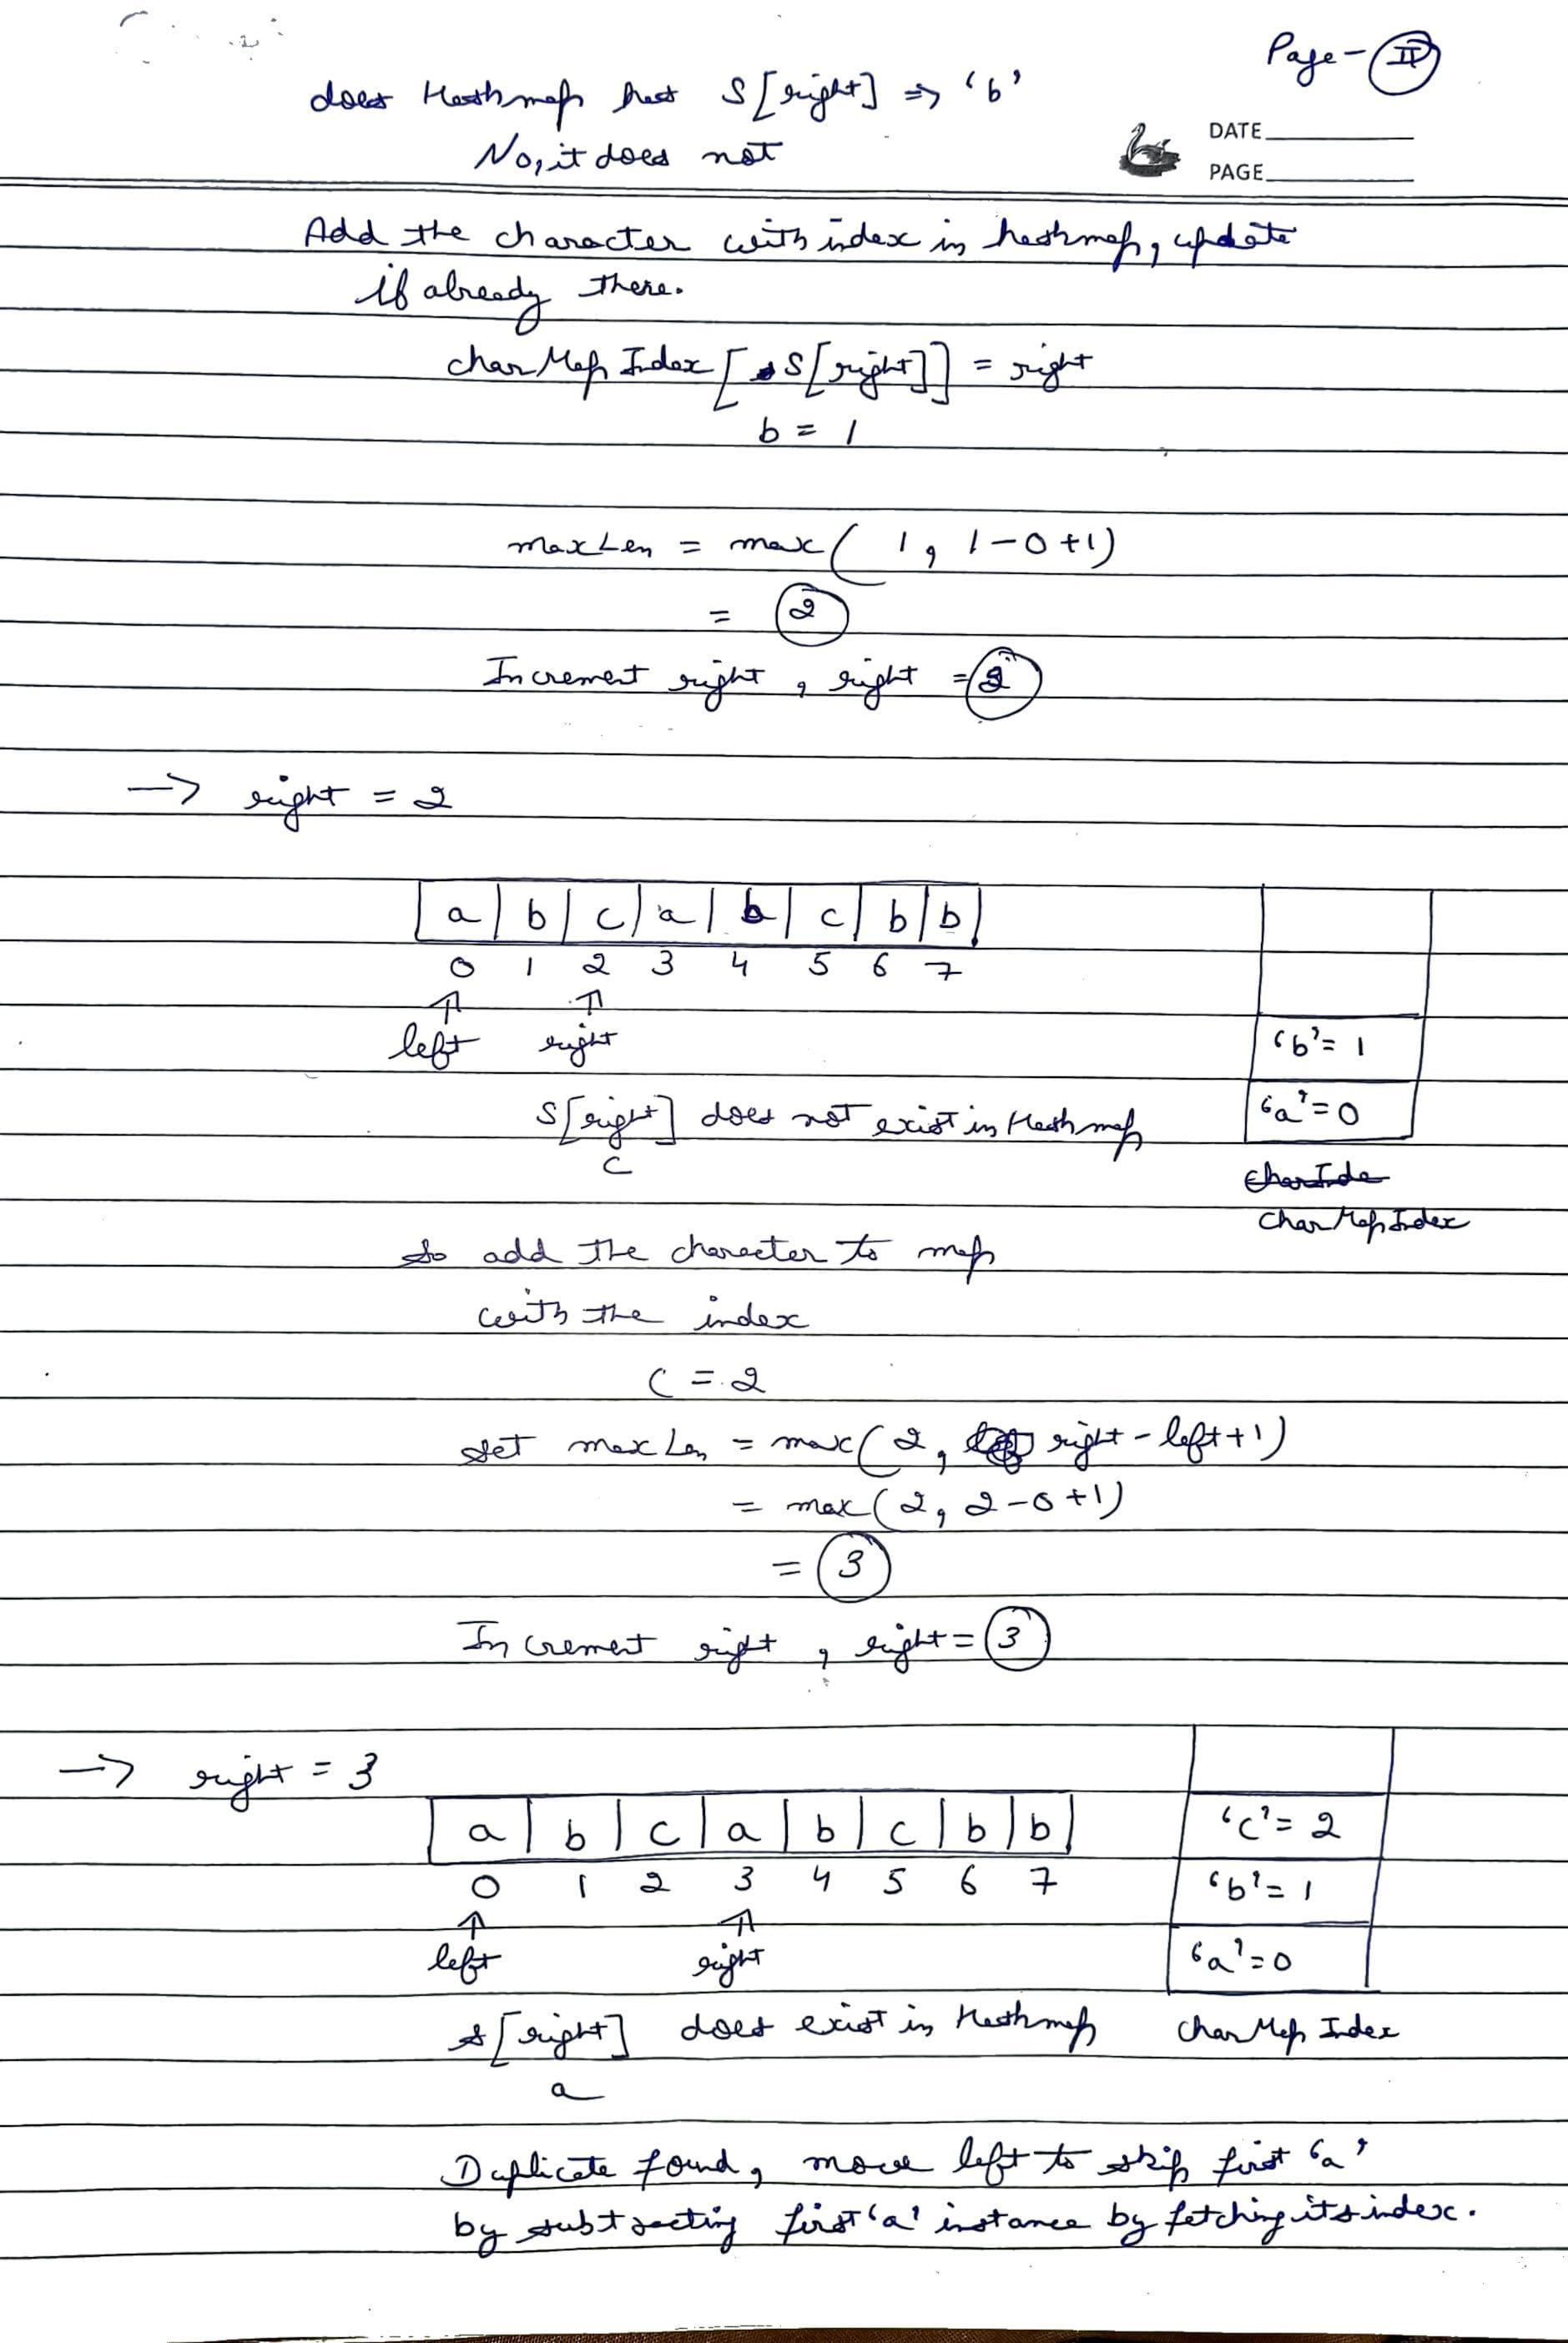 Page - II
does Hashmap has S[right] => 'b'
No, it does not
DATE
PAGE
Add the character with index in hashmap, update
if already there.
charMapIndex [ S[right]] = right
b = 1
maxLen = max( 1, 1-0+1)
= 2
Increment right, right = 2
-> right = 2
a | b | c | a | b | c | b | b
0 1 2 3 4 5 6 7
left right
'b' = 1
'a' = 0
S[right] does not exist in Hashmap
c
CharInde
CharMapIndex
So add the character to map
with the index
C = 2
set maxLen = max(2, right - left + 1)
= max(2, 2-0+1)
= 3
Increment right, right = 3
-> right = 3
a | b | c | a | b | c | b | b
0 1 2 3 4 5 6 7
left right
'c' = 2
'b' = 1
'a' = 0
S[right] does exist in Hashmap
a
CharMapIndex
Duplicate found, move left to skip first 'a'
by subtracting first 'a' instance by fetching its index.